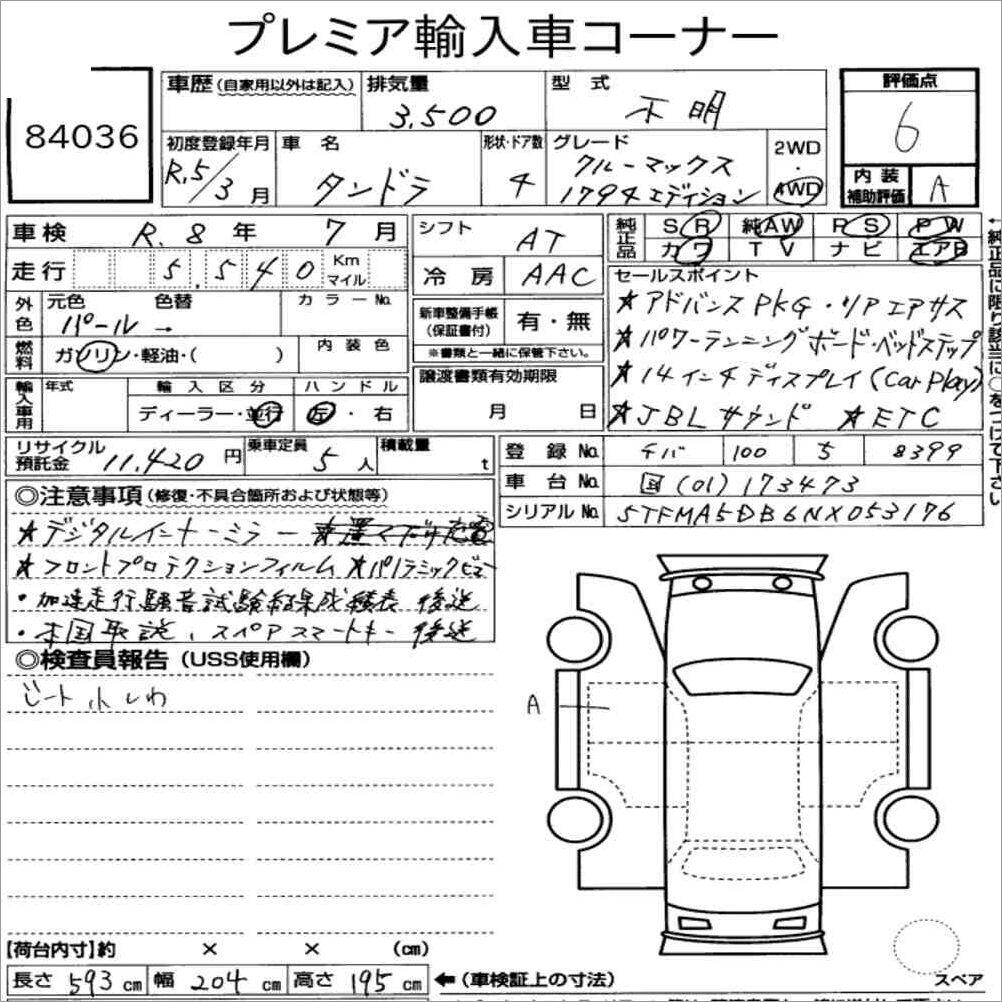 プレミア輸入車コーナー
84036
車歴(自家用以外は記入) 排気量 3,500 型式 不明 評価点 6
初度登録年月 R.5/3月 車名 タンドラ 形状・ドア数 4 グレード クルーマックス 1794エディション 2WD・4WD 内装補助評価 A
車検 R.8年 7月 シフト AT 純正品 SR 純AW PS PW
カワ TV ナビ エアB
走行 5,540 Km マイル 冷房 AAC
外色 元色 パール 色替 → カラーNo.
燃料 ガソリン・軽油・( ) 内装色
新車整備手帳(保証書付) 有・無
※書類と一緒に保管下さい。
輸入車用 年式 輸入区分 ディーラー・並行 ハンドル 左・右
譲渡書類有効期限 月 日
セールスポイント
★アドバンスPKG・リアエアサス
★パワーランニングボード・ベッドステップ
★14インチディスプレイ(Car Play)
★JBLサウンド ★ETC
←純正品に限り該当に○をつけて下さい
リサイクル預託金 11,420円 乗車定員 5人 積載量 t
登録No. チバ 100 ち 8399
車台No. 国(01)173473
シリアルNo. 5TFMA5DB6NX053176
◎注意事項(修復・不具合箇所および状態等)
★デジタルインナーミラー ★置くだけ充電
★フロントプロテクションフィルム ★パノラミックビュー
・加速走行騒音試験結果成績表 後送
・本国取説、スペアスマートキー 後送
◎検査員報告(USS使用欄)
シート小しわ
A
【荷台内寸】約 × × (cm)
長さ 593 cm 幅 204 cm 高さ 195 cm ←(車検証上の寸法)
スペア